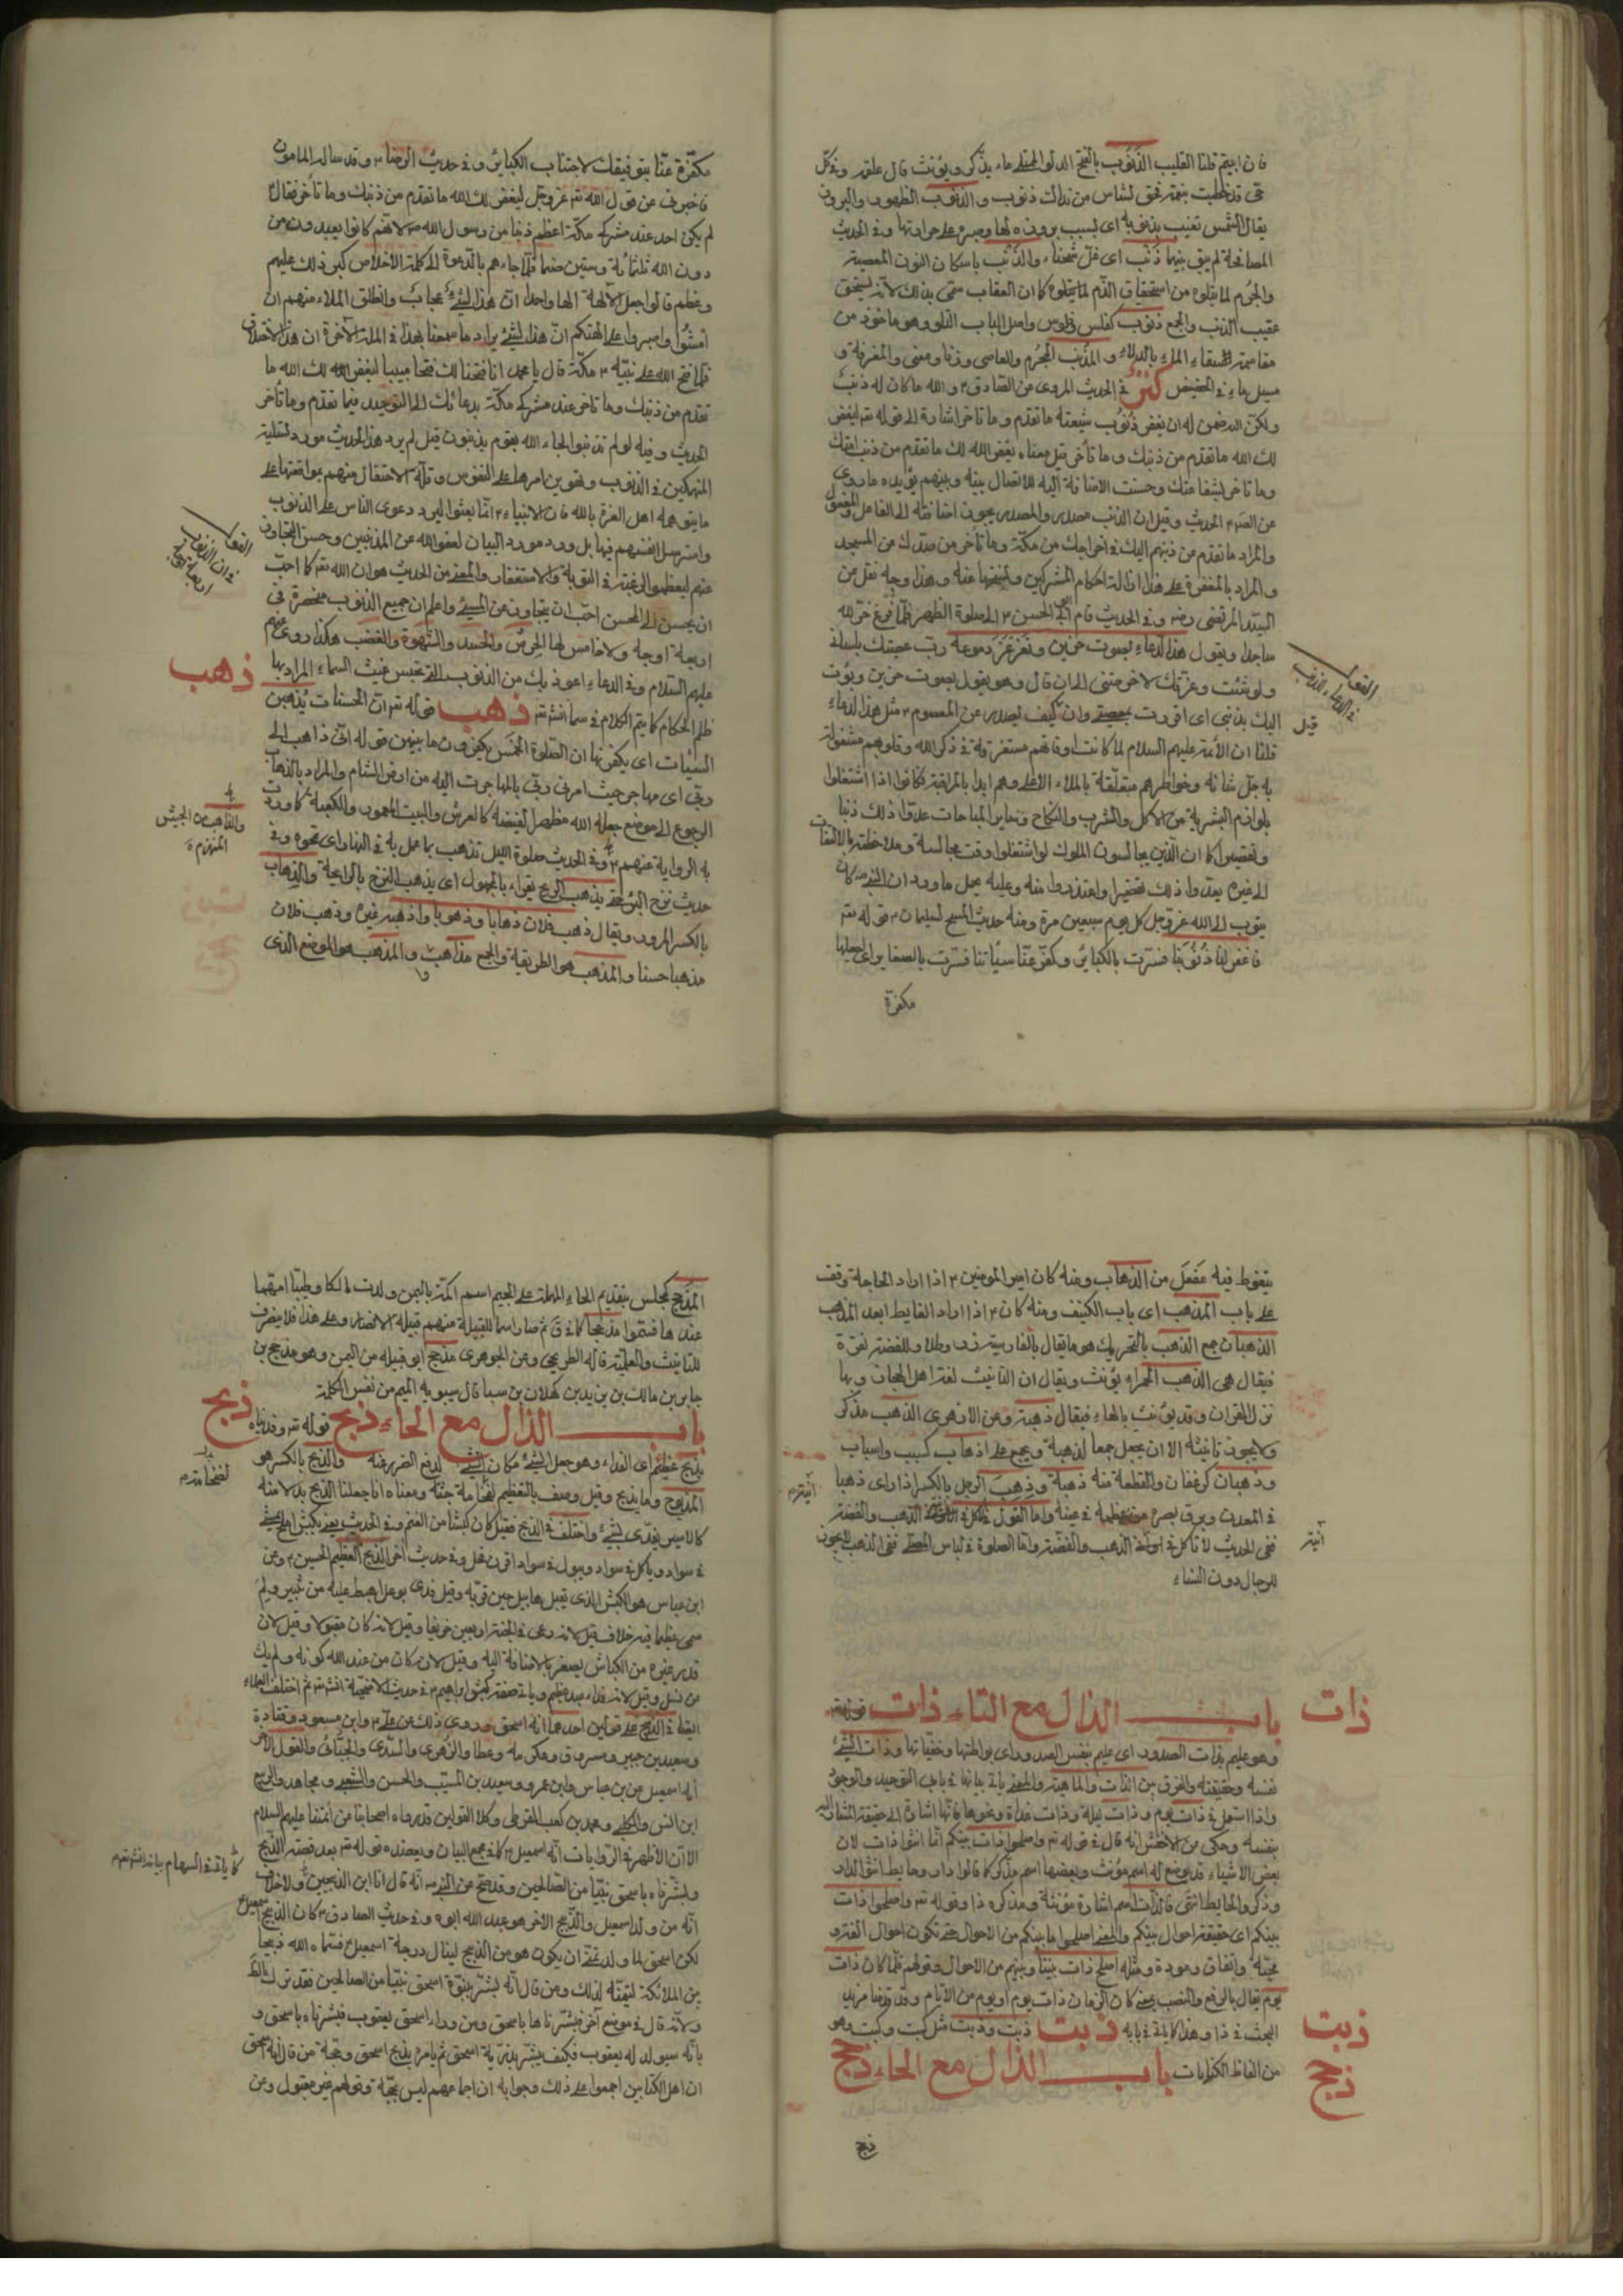 فان ابيتم قلنا القليب الذنوب بالفتح الدلو الممتلئ ماء يذكر ويؤنث قال علقمة وفي كل
حي قد خبطت بنعمة فحق لشاس من نداك ذنوب و الذنوب
يقال الشمس تغيب بذنوبه اى لسبب لها وصبره على حرارتها وفى الحديث
المصافحة لم يبق بينهما ذنب اى غل وشحناء والذنب باسكان النون المعصية
والجرم لما يتلوه من استحقاق الذم لما يتلوه كما ان العقاب سمى بذلك لانه يستحق
عقيب الذنب والجمع ذنوب كفلس وفلوس واصل الباب التلو وهو ماخوذ من
الماء بالدلاء و المذنب المجرم والعاصى وزنا ومعنى
مسيل ماء فى الحضيض فى الحديث المروى عن الصادق م والله ما كان له ذنب
ولكن الله ضمن له ان يغفر ذنوب شيعته ما تقدم وما تاخر اشارة الى قوله تع ليغفر
لك الله ما تقدم من ذنبك وما تأخر قيل معناه يغفر الله لك ما تقدم من ذنب امتك
وما تاخر بشفاعتك وحسنت الاضافة اليه للاتصال بينه وبينهم يؤيده ما روى
عن الحديث وقيل ان الذنب مصدر والمصدر يجوز اضافته الى الفاعل والمفعول
والمراد ما تقدم من ذنبهم اليك فى اخراجك من مكة وما تأخر من صدك عن المسجد
و المراد بالمغفرة على هذا ازالة احكام المشركين ونسخها عنه وهذا وجه نقل عن
السيد المرتضى رضه وفى الحديث قام ابى الحسن م الى صلوة الظهر فلما فرغ خر لله
ساجدا ويقول هذا الدعاء بصوت حزين وتغرغر دموعه رب عصيتك بلسانى
ولو شئت وعزتك لاخرستنى الى ان قال وهو يقول بصوت حزين وبؤت
اليك بذنبى اى اقررت بمعصيتى وان كيف يصدر عن المعصوم م مثل هذا الدعاء
قلنا ان الأئمة عليهم السلام لما كانت اوقاتهم مستغرقة فى ذكر الله وقلوبهم مشغولة
به جل شانه وخواطرهم متعلقة بالملاء الاعلى وهم ابدا بالمراقبة فكانوا اذا اشتغلوا
بلوازم البشرية من الاكل والشرب والنكاح وساير المباحات عدوا ذلك ذنبا
وتقصيرا كما ان الذين يجالسون الملوك لو اشتغلوا وقت مجالسة وملاحظته بالالتفات
الى غيره يعدوا ذلك تقصيرا واعتذروا منه وعليه يحمل ما ورد ان النبى ص كان
يتوب الى الله عز وجل كل يوم سبعين مرة ومنه حديث المسح لسليمان م قوله تع
فاغفر لنا ذنوبنا فسرت بالكبائر وكفر عنا سيئاتنا فسرت بالصغاير اى اجعلها
مكفرة
قيل
مكفرة عنا بتوفيقك لاجتناب الكبائر وفى حديث الرضا م وقد ساله المامون
فاخبرنى عن قول الله تع عز وجل ليغفر لك الله ما تقدم من ذنبك وما تأخر فقال م
لم يكن احد عند مشركى مكة اعظم ذنبا من رسول الله ص لانهم كانوا يعبدون من
دون الله ثلثمائة وستين صنما فلما جاءهم بالدعوة الى كلمة الاخلاص كبر ذلك عليهم
وعظم قالوا اجعل الآلهة الها واحدا ان هذا لشئ عجاب وانطلق الملاء منهم ان
امشوا واصبروا على الهتكم ان هذا لشئ يراد ما سمعنا بهذا فى الملة الآخرة ان هذا الا اختلاق
فلما فتح الله على نبيه م مكة قال يا محمد انا فتحنا لك فتحا مبينا ليغفر الله لك الله ما
تقدم من ذنبك وما تاخر عند مشركى مكة بدعائك الى التوحيد فيما تقدم وما تأخر
الحديث وفيه لو لم تذنبوا لجاء الله بقوم يذنبون قيل لم يرد هذا الحديث مورد تسلية
المنهمكين فى الذنوب وتهوين امرها على النفوس وقلة الاحتفال منهم بمواقعتها على
ما يتوهمه اهل الغرة بالله فان الانبياء م انما بعثوا ليردعوا الناس على الذنوب
واسترسال انفسهم فيها بل ورد مورد البيان لعفو الله عن المذنبين وحسن التجاوز
عنهم ليعظموا الرغبة فى التوبة والاستغفار والمعنى من الحديث هو ان الله تع كما احب
ان يحسن الى المحسن احب ان يتجاوز عن المسيئ واعلم ان جميع الذنوب منحصرة فى
اربعة اوجه ولا خامس لها الحرص والحسد والشهوة والغضب هكذا روى عنهم
عليهم السلام وفى الدعاء اعوذ بك من الذنوب التى تحبس غيث السماء المراد بها
ظلم الحكام كما يتم الكلام فى سما انش تع ذهب قوله تع ان الحسنات يذهبن
السيئات اى يكفرنها ان الصلوة الخمس يكفرون ما بينهن قوله انى ذاهب الى
ربى اى مهاجر حيث امرنى ربى بالمهاجرت اليه من ارض الشام والمراد بالذهاب
الرجوع الى موضع جعله الله مظهرا لفيضه كالعرش والبيت المعمور والكعبة كما ورد
به الرواية عنهم م وفى الحديث صلوة الليل تذهب بما عمل به فى النهار اى تمحوه وفى
حديث نزح البئر حتى يذهب الريح يقراء بالمجهول اى يذهب النزح بالرايحة والذهاب
بالكسر المرور ويقال ذهب فلان ذهابا وذهوبا واذهبه غيره وذهب فلان
مذهبا حسنا والمذهب هو الطريقة والجمع مذاهب والمذهب هو الموضع الذى
ذهب
والذاهب من الجيش
المنهزم
يتغوط فيه مفعل من الذهاب ومنه كان امير المومنين م اذا اراد الحاجة وقف
على باب المذهب اى باب الكنيف ومنه كان م اذا اراد الغايط ابعد المذهب
الذهبان جمع الذهب بالتحريك هو ما يقال بالفارسية زر وطلا وللفضة نقرة
فيقال هى الذهب الحمراء يؤنث ويقال ان التانيث لغة اهل الحجاز وبها
نزل القران وقد يؤنث بالهاء فيقال ذهبة وعن الازهرى الذهب مذكر
ولا يجوز تانيثه الا ان يجعل جمعا لذهبة ويجمع على اذهاب كسبب واسباب
وذهبان كرغفان والقطعة منه ذهبة وذهب الرجل بالكسر اذا راى ذهبا
فى المعدن وبرق بصره من عظمه فى عينه واما القول الذهب والفضة
ففى الحديث لا تاكل فى اوانى الذهب والفضة واما الصلوة فى لباس ففى الذهب لا يجوز
للرجال دون النساء
باب الذال مع التاء ذات قوله تع
وهو عليم بذات الصدور اى عليم بنفس الصدور اى بواطنها وخفياتها وذات الشئ
نفسه وحقيقته والفرق بين الذات والماهية والمعنى ياتى بيانها فى باب التوحيد والوجود
واذا استعمل فى ذات يوم وذات ليلة وذات غداة ونحوها فانها اشارة الى حقيقة المشار اليه
بنفسه وحكى عن الاخفش انه قال فى قوله تع واصلحوا ذات بينكم انما انثوا ذات لان
بعض الاشياء قد يوضع له اسم مؤنث وبعضها اسم مذكر كما قالوا دار وحايط انثوا الدار
وذكروا الحايط انتهى فالذات اسم اشارة مؤنثة ومذكره ذا وقوله تع واصلحوا ذات
بينكم اى حقيقة احوال بينكم والمعنى اصلحوا ما بينكم من الاحوال حتى تكون احوال الفة و
محبة واتفاق ومودة ومثله اصلح ذات بيننا وبينهم من الاحوال وقولهم فلما كان ذات
يوم يقال بالرفع والنصب بمعنى كان الزمان ذات يوم او يوم من الايام وقد عرفنا مزيد
البحث فى ذا وهذا كاياتى فى بابه ذيت ذيت وذيت مثل كيت وكيت وهو
من الفاظ الكنايات باب الذال مع الحاء ذحج
ذات
ذيت
ذحج
ذبح
المذحج كمجلس بتقديم الحاء المهملة على الجيم اسم اكمة باليمن ولدت مالكا وطيئا امهما
عندها فسموا مذحجا كما فى ق ثم صار اسما للقبيلة منهم قبيلة الانصار وعلى هذا فلا ينصرف
للتانيث والعلمية قاله الطريحى وعن الجوهرى مذحج ابو قبيلة من اليمن وهو مذحج بن
جابر بن مالك بن زيد بن كهلان بن سبا قال سيبويه الميم من نفس الكلمة
باب الذال مع الحاء ذبح قوله تع وفديناه
بذبح عظيم اى الفداء وهو جعل الشئ مكان الشئ لدفع الضرر عنه والذبح بالكسر هو
المذبوح وما يذبح وقيل وصف بالتعظيم لضخامة جثته ومعناه انا جعلنا الذبح بدلا منه
كالاسير يفدى بشئ واختلف فى الذبح فقيل كان كبشا من الغنم وفى الحديث يعنى بكبش املح يمشى
فى سواد وياكل فى سواد ويبول فى سواد اقرن فحل وفى حديث اخر الذبح العظيم الحسين م وعن
ابن عباس هو الكبش الذى تقبل هابيل حين قربه وقيل فدى بوعل اهبط عليه من ثبير ولم
سمى عظيما فيه خلاف قيل لانه رعى فى الجنة اربعين خريفا وقيل لانه كان مقبولا وقيل لان
قدر غيره من الكباش يصغر بالاضافة اليه وقيل لانه كان من عند الله كونه ولم يك
من نسل وقيل لانه فداء عبد عظيم وياتى صفة كبش ابراهيم م فى حديث الاضحية انش تع ثم اختلف العلماء
فى الذبيح على قولين احدهما انه اسحق وروى ذلك عن على م وابن مسعود وقتادة
وسعيد بن جبير ومسروق وعكرمه وعطا والزهرى والسدى والجبائى والقول الآخر
انه اسمعيل عن ابن عباس وابن عمر وسعيد بن المسيب والحسن والشعبى ومجاهد والربيع
ابن انس والكلبى ومحمد بن كعب القرظى وكلا القولين قد رواه اصحابنا عن ائمتنا عليهم السلام
الا ان الاظهر فى الروايات انه اسمعيل م كما فى مجمع البيان ويعضده قوله تع بعد قصة الذبح
وبشرناه باسحق نبيا من الصالحين وقد صح عن النبى ص انه قال انا ابن الذبيحين ولا خلاف
انه من ولد اسمعيل والذبيح الاخر هو عبد الله ابوه وفى حديث الصادق م كان الذبيح اسمعيل
لكن اسحق لما ولد تمنى ان يكون هو من الذبح لينال درجة اسمعيل م فسماه الله ذبيحا
بين الملائكة لتمنيه لذلك ومن قال انه بشر بنبوة اسحق نبيا من الصالحين فقد ترك الظ
ولانه قال فى موضع آخر فبشرناها باسحق ومن وراء اسحق يعقوب فبشرناه باسحق و
بانه سيولد له يعقوب فكيف يبشر بذرية اسحق ثم يامره بذبح اسحق وحجة من قال انه اسحق
ان اهل الكتابين اجمعوا على ذلك وجوابه ان اجماعهم ليس بحجة وقولهم غير مقبول وعن